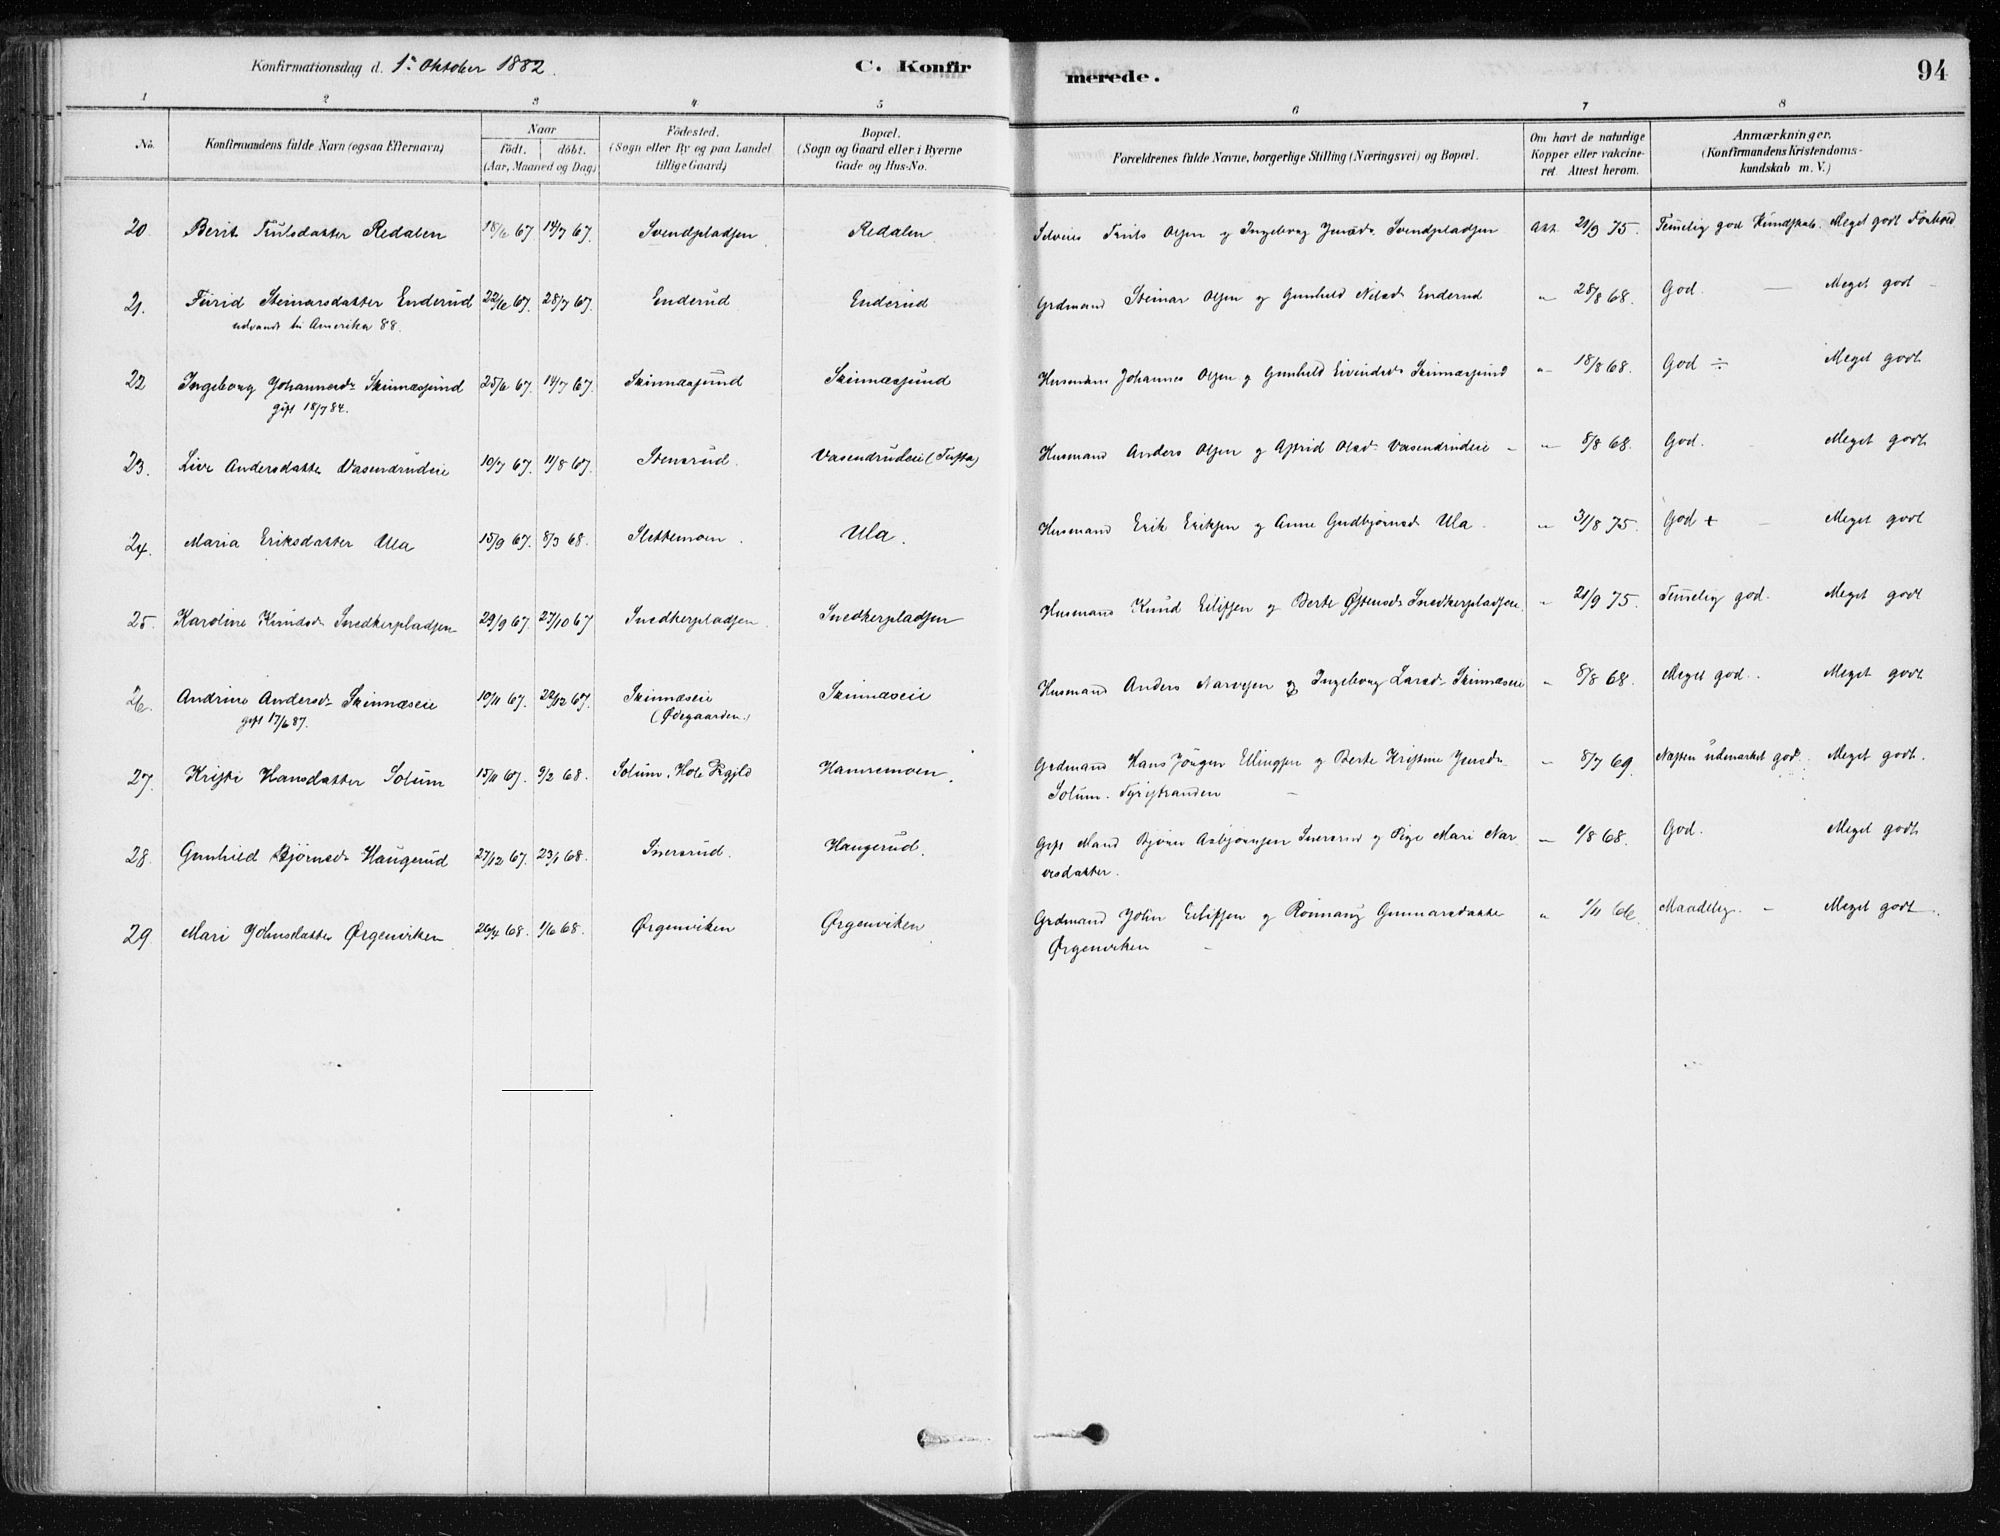 Konfirmationsdag d. 1ste Oktober 1882. C. Konfirmerede. 94
1 2 3 4 5 6 7 8
No. Konfirmandens fulde Navn (ogsaa Efternavn) Naar födt. döbt. (Aar, Maaned og Dag) Födested. (Sogn eller By og paa Landet tillige Gaard) Bopæl. (Sogn og Gaard eller i Byerne Gade og Hus-No. Forældrenes fulde Navne, borgerlige Stilling (Næringsvei) og Bopæl. Om havt de naturlige Kopper eller vakcineret. Attest herom. Anmærkninger. (Konfirmandens Kristendomskundskab m. V.)
20. Berit Trulsdatter Redalen 18/6 67 14/7 67. Svendpladsen Redalen Selveier Truls Olsen og Ingeborg Jensd. Svendpladsen Att. 21/9 75. Temmelig god Kundskab. Meget godt Forhold
21. Turid Steinarsdatter Enderud 22/6 67. 28/7 67. Enderud Enderud Grdmand Steinar Olsen og Gunhild Nilsd. Enderud " 28/8 68. God. — Meget godt
udvandr. til Amerika 88.
22 Ingeborg Johannesd. Skinnæssund 25/6 67 14/7 67. Skinnæssund Skinnæssund Husmand Johannes Olsen og Gunhild Eivindsd. Skinnæssund " 18/8 68. God ÷ Meget godt
gift 18/7 84.
23. Live Andersdatter Vasendrudeie 10/7 67. 11/8 67. Stensrud. Vasendrudeie (Tufta) Husmand Anders Olsen og Astrid Olsd. Vasendrudeie " 8/8 68. God. Meget godt
24. Maria Eriksdatter Ula 15/9 67. 8/3 68. Slettemoen. Ula. Husmand Erik Eriksen og Anne Gudbjørnsd. Ula. " 31/8 75. God + Meget godt
25. Karoline Knudsd. Snedkerpladsen 29/9 67. 27/10 67 Snedkerpladsen. Snedkerpladsen Husmand Knud Eilifsen og Berte Østensd. Snedkerpladsen. " 21/9 75. Temmelig god. Meget godt
26. Andrine Andersd. Skinnæseie 10/11 67. 22/12 67. Skinnæseie Skinnæseie Husmand Anders Narvesen og Ingeborg Larsd. Skinnæseie " 8/8 68. Meget god. Meget godt
gift 17/6 87. (Ødegaarden.)
27. Kristi Hansdatter Solum 15/11 67. 9/2 68. Solum, Hole Prgjld Hamremoen. Grdmand Hans Jörgen Ellingsen og Berte Kristine Jensd. " 8/7 69. Næsten udmærket god. Meget godt.
Solum. Tyristranden
28. Gunhild Björnsd. Haugerud 27/12 67. 23/1 68. Snersrud. Haugerud. Gift Mand Björn Asbjörnsen Snersrud og Pige Mari Nar- " 1/8 68. God. Meget godt
vesdatter.
29 Mari Johnsdatter Ørgenviken 26/4 68. 1/6 68. Ørgenviken Ørgenviken Grdmand John Eilifsen og Rönnaug Gunnarsdatter " 1/11 66. Maadelig. — Meget godt.
Ørgenviken